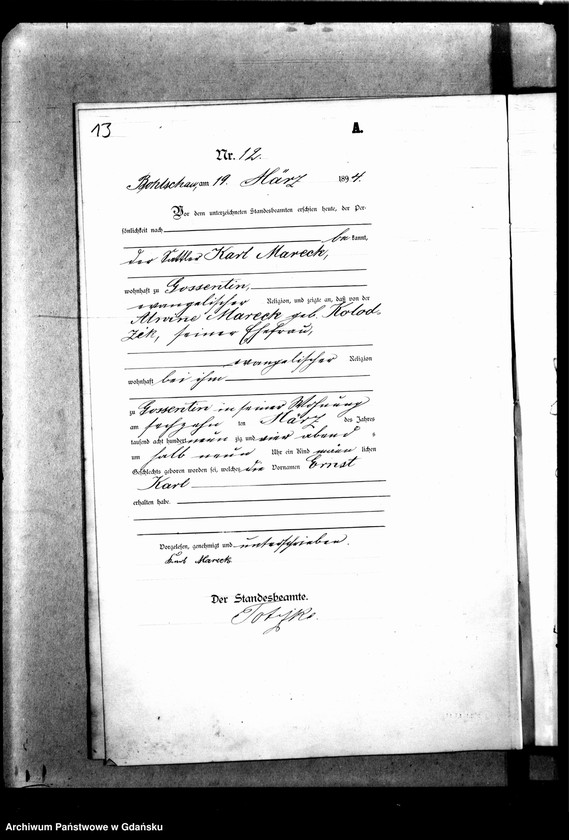 13
A.
Nr. 12.
Bohlschau, am 19. März 1894.
Vor dem unterzeichneten Standesbeamten erschien heute, der Per-
sönlichkeit nach
be kannt,
der Sattler Karl Mareck,
wohnhaft zu Gossentin,
evangelischer Religion, und zeigte an, daß von der
Alwine Mareck geb. Kolod-
zik, seiner Ehefrau,
evangelischer Religion
wohnhaft bei ihm
zu Gossentin in seiner Wohnung
am sechzehn ten März des Jahres
tausend acht hundert neun zig und vier abend s
um halb neun Uhr ein Kind männ lichen
Geschlechts geboren worden sei, welches die Vornamen Ernst
Karl
erhalten habe.
Vorgelesen, genehmigt und unterschrieben.
Karl Mareck
Der Standesbeamte.
Archiwum Państwowe w Gdańsku